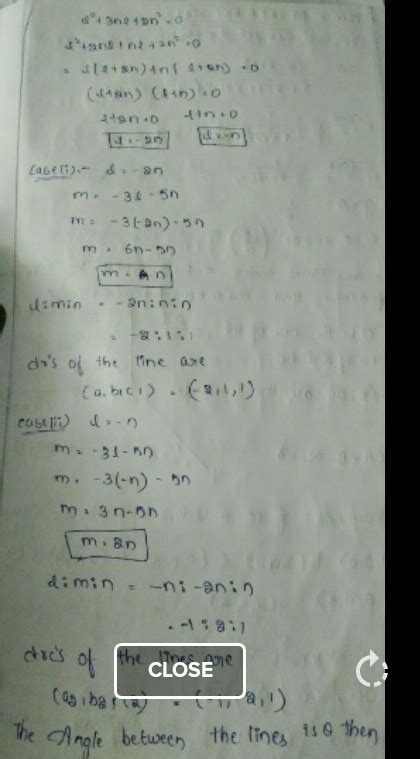 l²+3nl+2n²=0
l²+2nl+nl+2n²=0
= l(l+2n)+n(l+2n)=0
(l+2n) (l+n)=0
l+2n=0 l+n=0
l=-2n l=-n
Case(i):- l=-2n
m= -3l-5n
m= -3(-2n)-5n
m= 6n-5n
m= n
l:m:n = -2n:n:n
= -2:1:1
dr's of the line are
(a1b1c1) = (-2,1,1)
case(ii) l=-n
m= -3l-5n
m= -3(-n)-5n
m= 3n-5n
m=2n
l:m:n = -n:-2n:n
= -1:2:1
of the lines are
CLOSE
The Angle between the lines is θ then